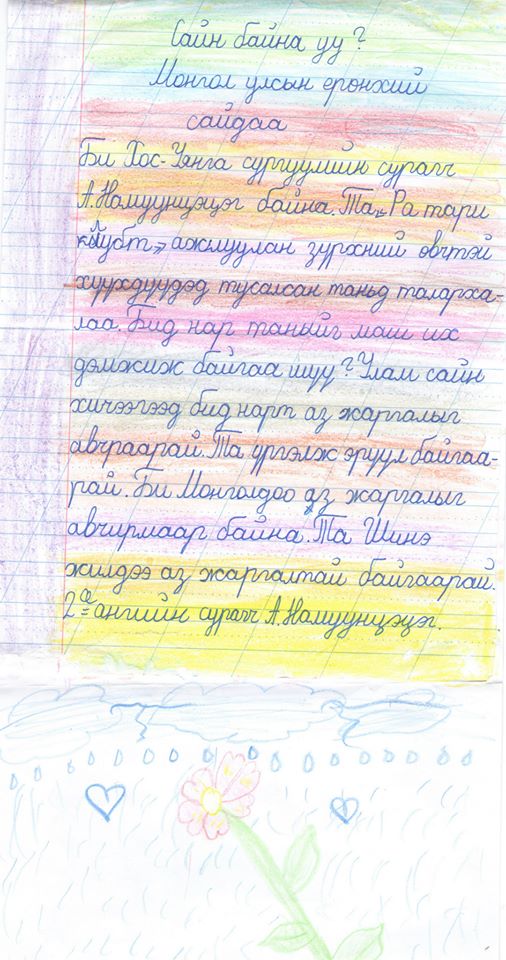 Сайн байна уу?
Монгол улсын ерөнхий
сайдаа
Би Хос-Уянга сургуулийн сурагч
А.Намуунцэцэг байна. Та „Ра тари
клубт" ажлуулан зүрхний өвчтэй
хүүхдүүдэд тусалсан таньд таларха-
лаа. Бид нар таныйг маш их
дэмжиж байгаа шүү? Улам сайн
хичээгээд бид нарт аз жаргалыг
авчраарай. Та үргэлж эрүүл байгаа-
рай. Би Монголдоо аз жаргалыг
авчирмаар байна. Та Шинэ
жилдээ аз жаргалтай байгаарай.
2 ангийн сурагч А.Намуунцэцэг.